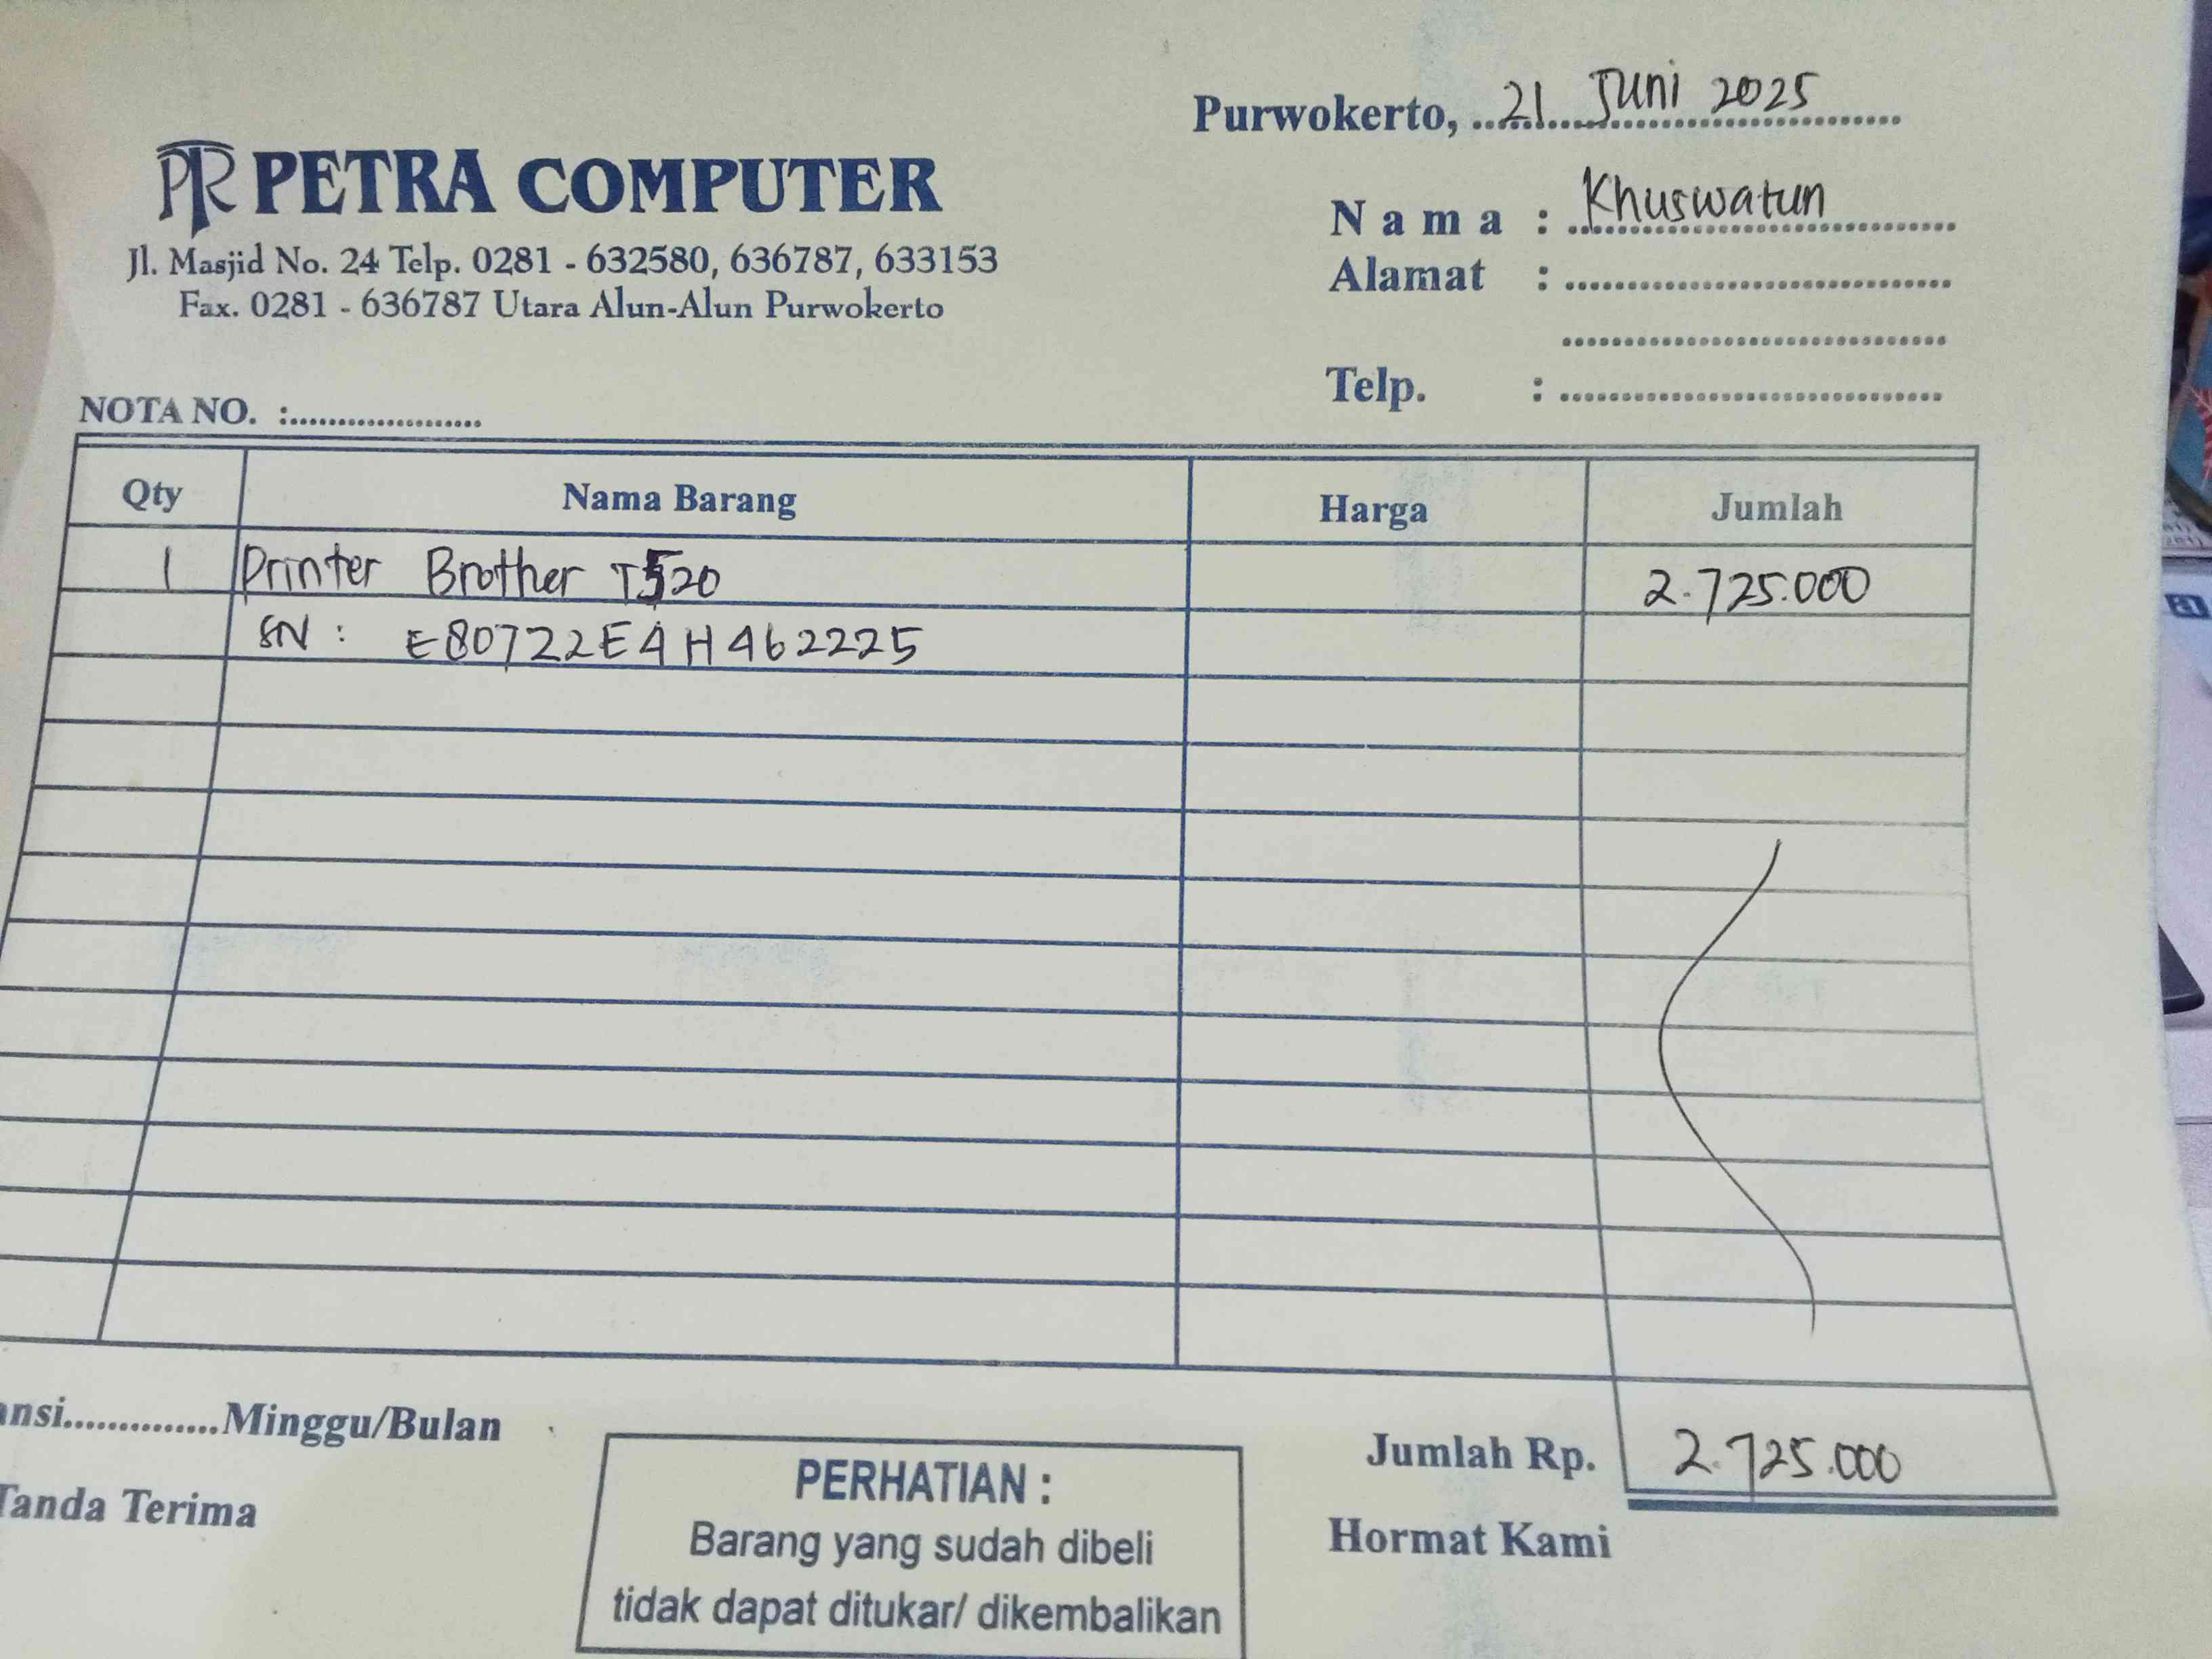 Purwokerto, ..21 Juni 2025..........
PTR PETRA COMPUTER
Jl. Masjid No. 24 Telp. 0281 - 632580, 636787, 633153
Fax. 0281 - 636787 Utara Alun-Alun Purwokerto
Nama : Khuswatun
Alamat : ...............................
...............................
Telp. : ...............................
NOTA NO. :.....................
Qty Nama Barang Harga Jumlah
1 Printer Brother T520 2.725.000
SN : E80722E4H462225
ansi..............Minggu/Bulan
Jumlah Rp. 2.725.000
Tanda Terima
Hormat Kami
PERHATIAN :
Barang yang sudah dibeli
tidak dapat ditukar/ dikembalikan